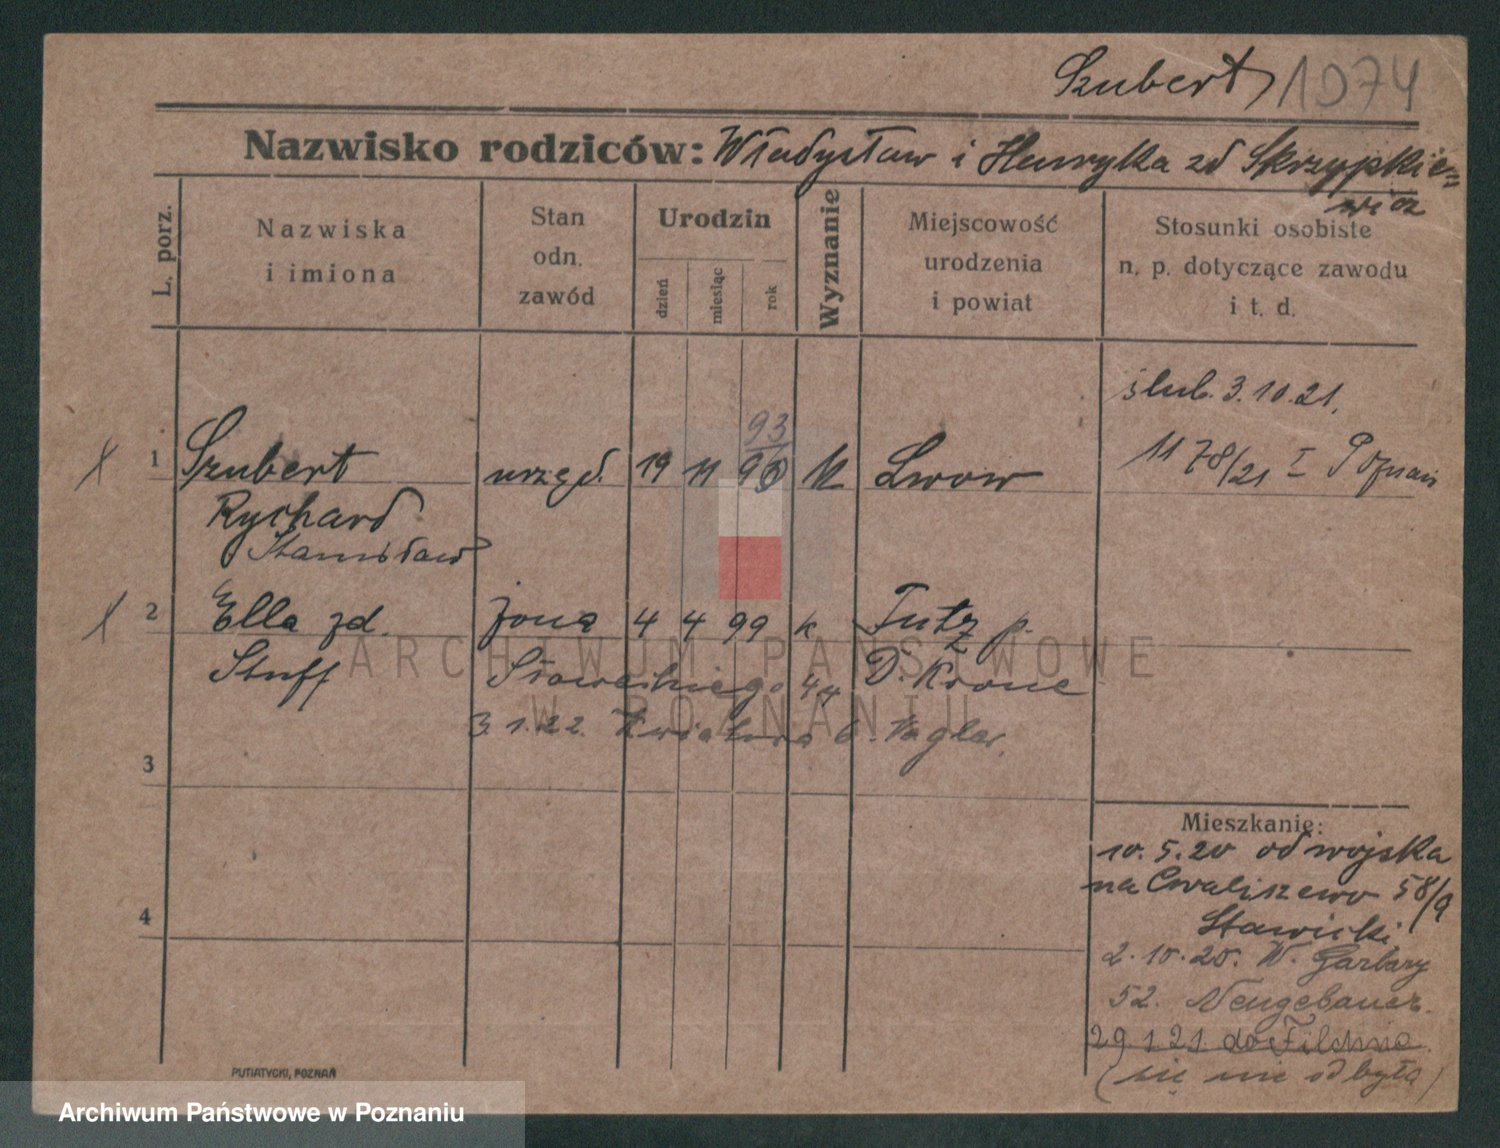 Szubert 1074
Nazwisko rodziców: Władysław i Henryka zd Skrzypkie=
wicz
L. porz.
Nazwiska
i imiona
Stan
odn.
zawód
Urodzin
dzień
miesiąc
rok
Wyznanie
Miejscowość
urodzenia
i powiat
Stosunki osobiste
n. p. dotyczące zawodu
i t. d.
ślub. 3.10.21.
93
1 Szubert urzęd. 19 11 90 Lwow 1178/21 I Poznań
Rychard
Stanisław
2 Ella zd. żona 4 4 99 k Tütz p.
Stuff Słowackiego 44 D. Krone
3.1.22. Kwiatowa 6. Kagler.
3
4
Mieszkanie:
10.5.20 od wojska
na Chwaliszewo 58/9
Stawicki
2.10.20. W. Garbary
52. Neugebauer.
29.1.21. do Filehna
(się nie odbyła)
PUTIATYCKI, POZNAŃ
ARCHIWUM PAŃSTWOWE
W POZNANIU
Archiwum Państwowe w Poznaniu